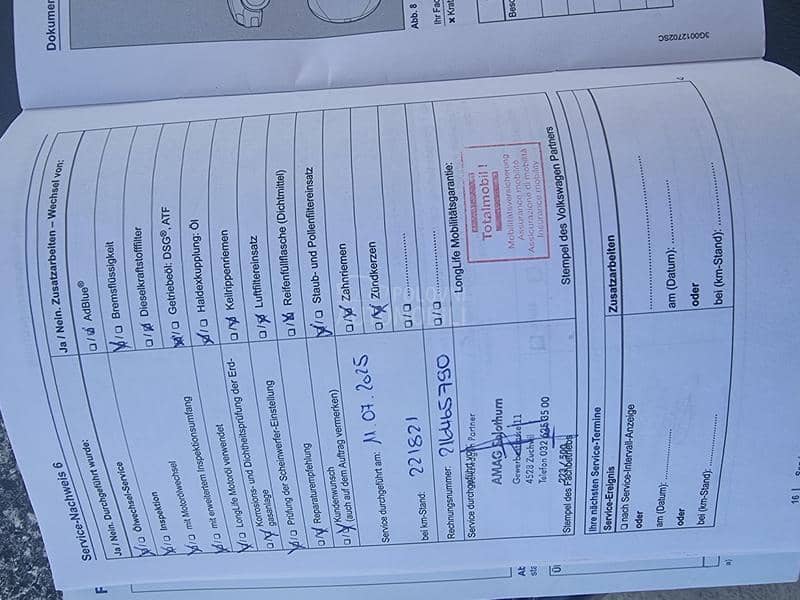 Dokumen
Abb. 8
Ihr Fac
x Krat
Besc
3G0012702SC
Service-Nachweis 6
Ja / Nein. Durchgeführt wurde:
Ölwechsel-Service
Inspektion
mit Motorölwechsel
mit erweitertem Inspektionsumfang
LongLife Motoröl verwendet
Korrosions- und Dichtheitsprüfung der Erd-
gasanlage
Prüfung der Scheinwerfer-Einstellung
Reparaturempfehlung
Kundenwunsch
(auch auf dem Auftrag vermerken)
Service durchgeführt am: 11.07.2025
bei km-Stand: 221821
Rechnungsnummer: 216465780
Service durchgeführt vom Partner
AMAG
4528 Zuchwil
Telefon 032 625 35 00
Stempel des Fachbetriebs
Ja / Nein. Zusatzarbeiten – Wechsel von:
AdBlue®
Bremsflüssigkeit
Dieselkraftstofffilter
Getriebeöl: DSG®, ATF
Haldexkupplung: Öl
Keilrippenriemen
Luftfiltereinsatz
Reifenfüllflasche (Dichtmittel)
Staub- und Pollenfiltereinsatz
Zahnriemen
Zündkerzen
LongLife Mobilitätsgarantie:
Totalmobil !
Mobilitätsversicherung
Assurance mobilité
Assicurazione di mobilità
Insurance mobility
Stempel des Volkswagen Partners
Ihre nächsten Service-Termine
Service-Ereignis
nach Service-Intervall-Anzeige
oder
am (Datum):
oder
bei (km-Stand):
Zusatzarbeiten
am (Datum):
oder
bei (km-Stand):
16